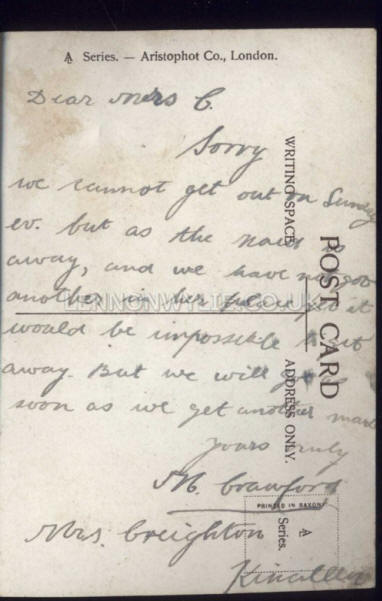 A Series. — Aristophot Co., London.
Dear Mrs C.
Sorry
we cannot get out on Sunday
ev. but as the maid is
away, and we have not got
another in her place yet it
would be impossible to get
away. But we will go as
soon as we get another maid
yours truly
M. Crawford
Mrs. Creighton
POST CARD
WRITING SPACE
ADDRESS ONLY.
PRINTED IN SAXONY
A
Series.
LENNONWYLIE.CO.UK